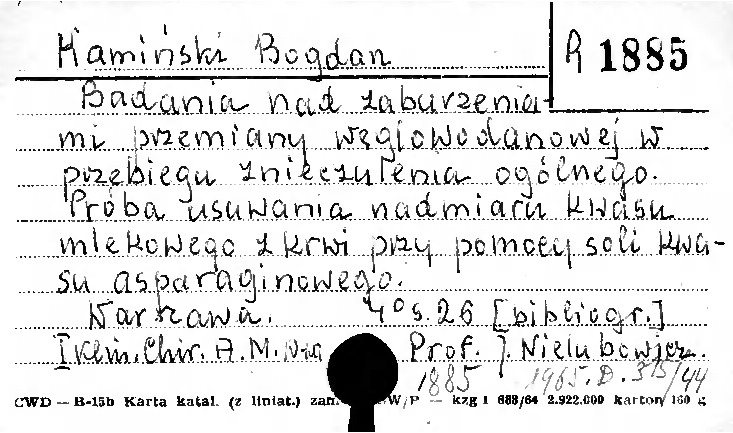 Kamiński Bogdan R 1885
Badania nad zaburzenia-
mi przemiany węglowodanowej w
przebiegu znieczulenia ogólnego.
Próba usuwania nadmiaru kwasu
mlekowego z krwi przy pomocy soli kwa-
su asparaginowego.
Warszawa. 4° s. 26 [bibliogr.]
I Klin. Chir. A.M. Prof. J. Nielubowicz.
1885 1965. D. 315/44
CWD — B-15b Karta katal. (z liniat.) W/P — kzg 1 688/64 2.922.000 karton 160 g